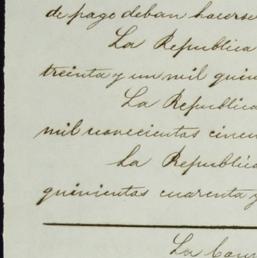 de pago deban hacerse
La Republica
treinta y un mil quin
La Republica
mil novecientas cincu
La Republica
quinientas cuarenta y
La Com